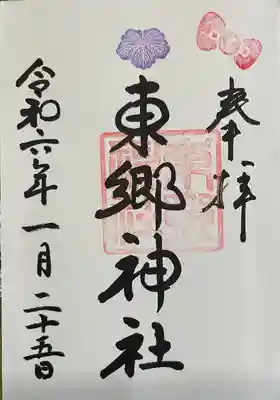 奉拝
東郷神社
令和六年一月二十五日